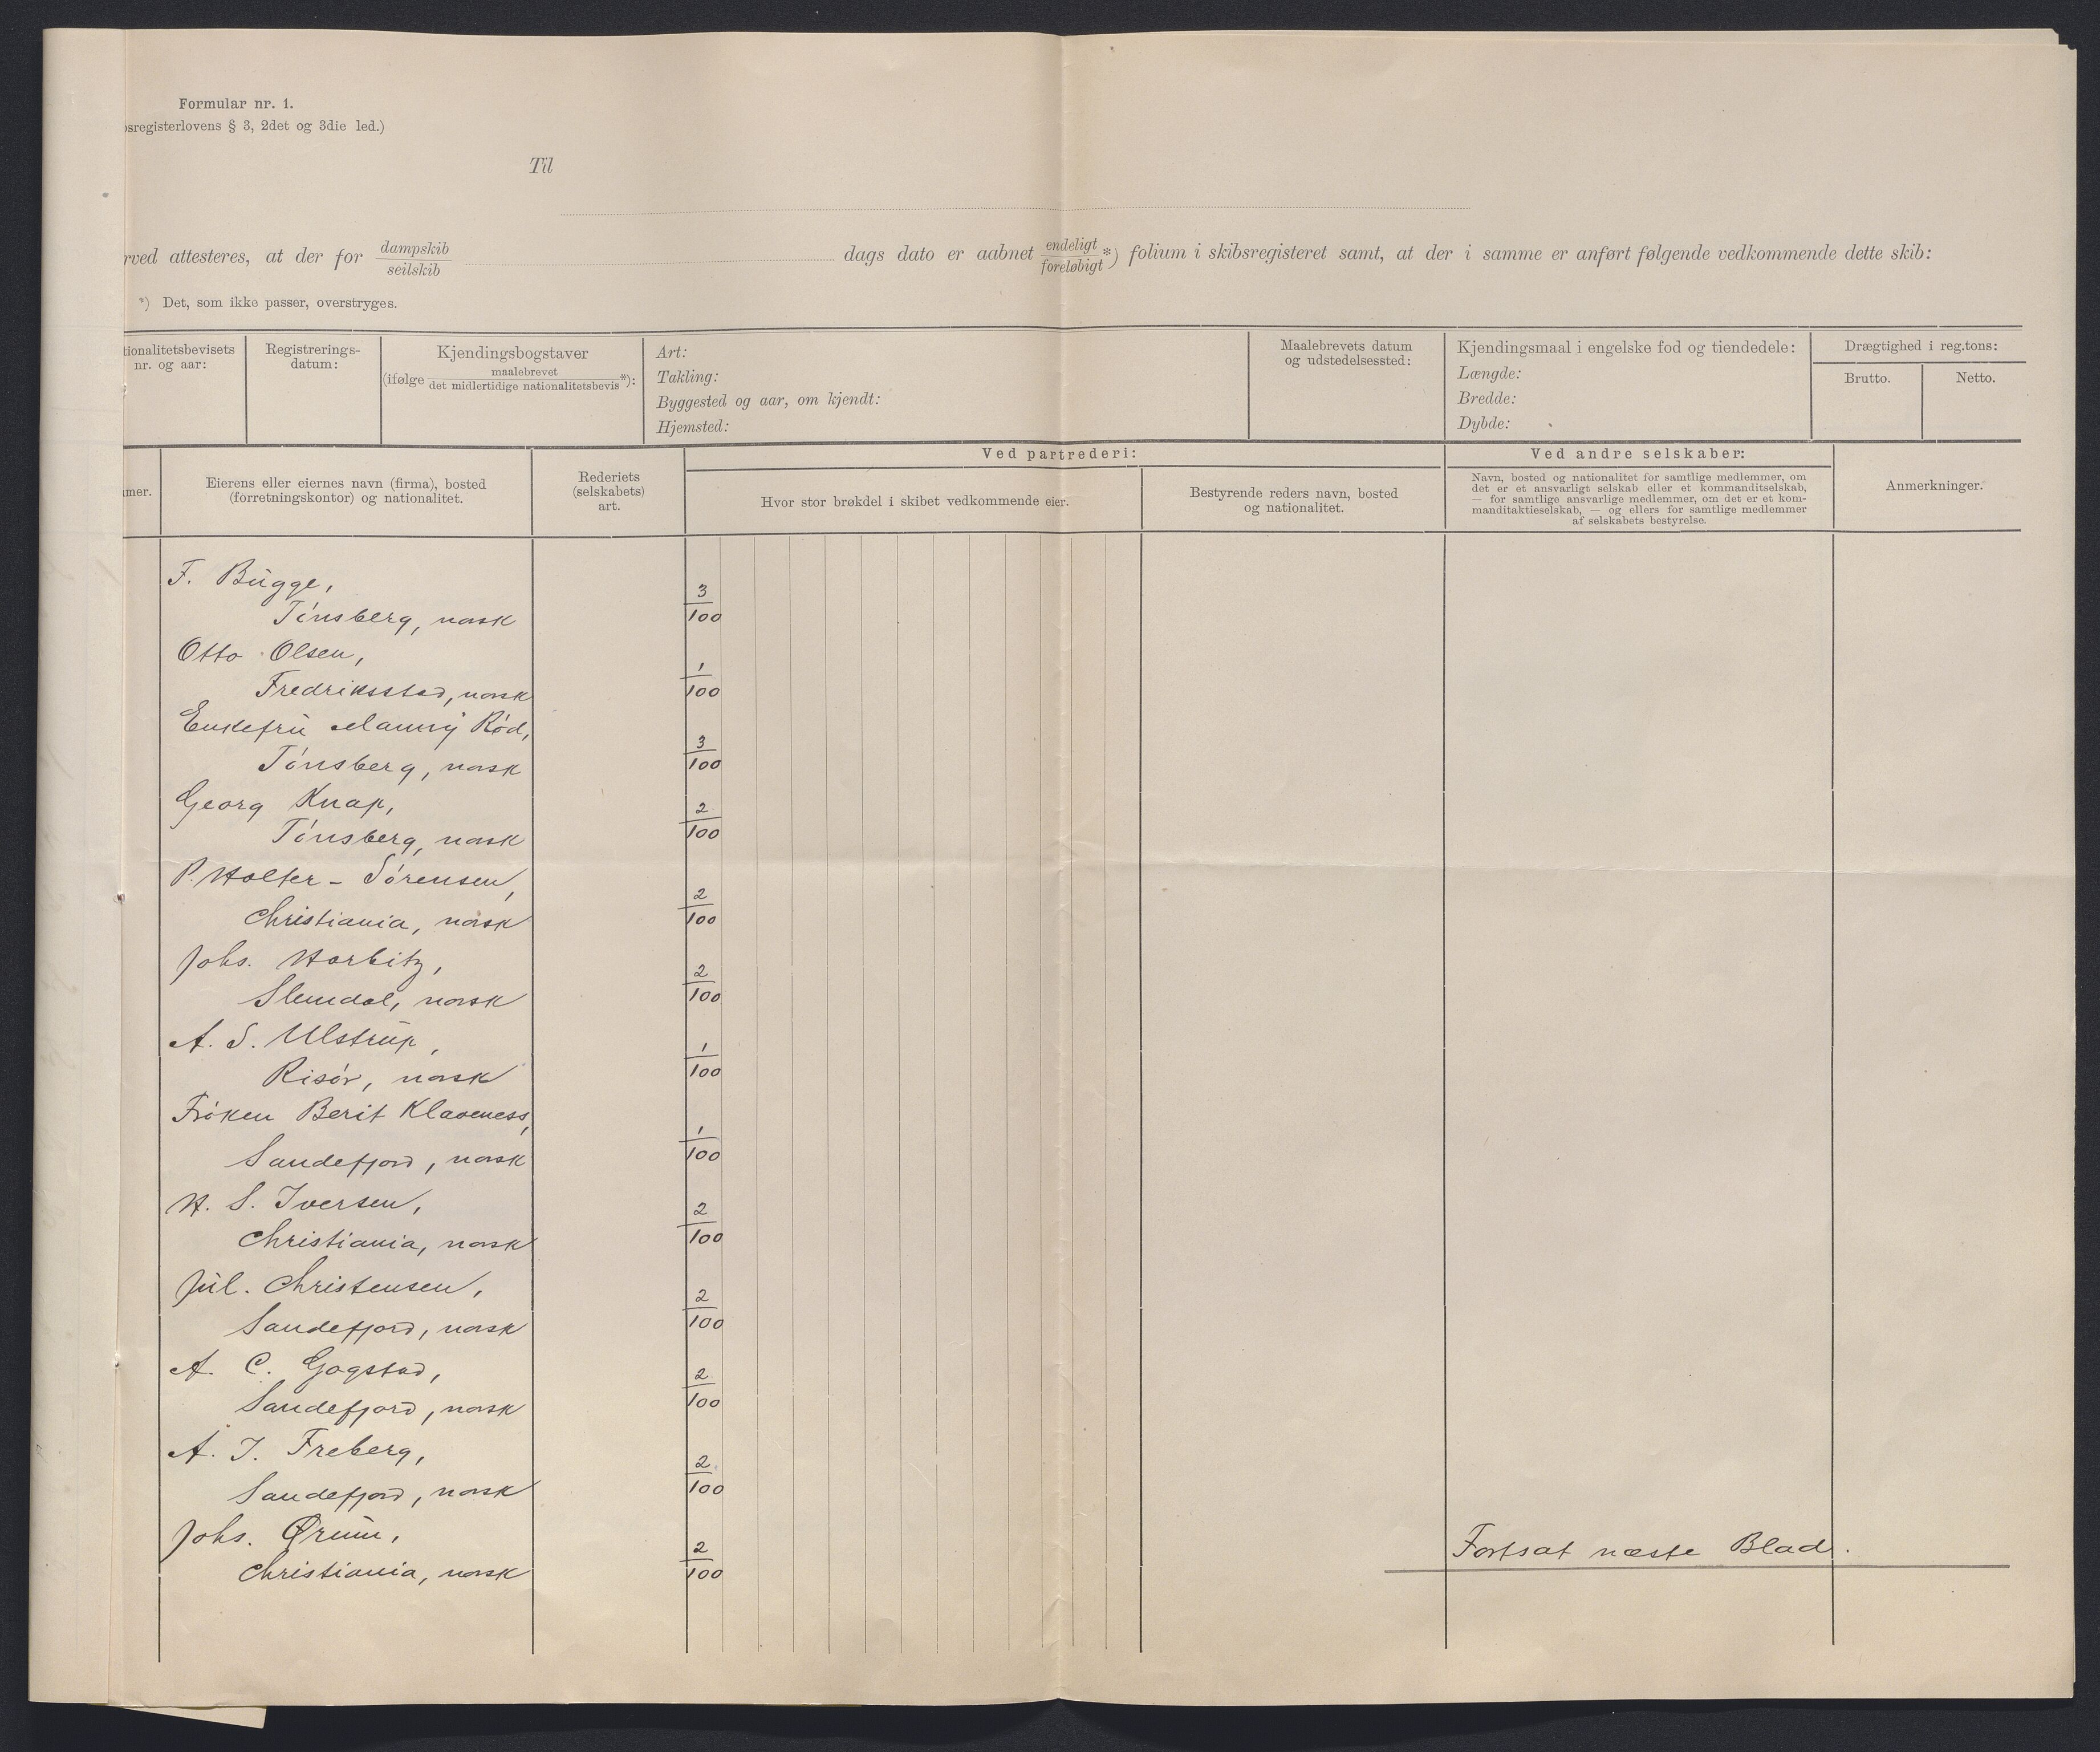 Formular nr. 1.
sregisterlovens § 3, 2det og 3die led.)
Til
rved attesteres, at der for dampskib seilskib dags dato er aabnet endeligt foreløbigt *) folium i skibsregisteret samt, at der i samme er anført følgende vedkommende dette skib:
*) Det, som ikke passer, overstryges.
tionalitetsbevisets
nr. og aar:
Registrerings-
datum:
Kjendingsbogstaver
(ifølge maalebrevet det midlertidige nationalitetsbevis *):
Art:
Takling:
Byggested og aar, om kjendt:
Hjemsted:
Maalebrevets datum
og udstedelsessted:
Kjendingsmaal i engelske fod og tiendedele:
Længde:
Bredde:
Dybde:
Drægtighed i reg.tons:
Brutto.
Netto.
mer.
Eierens eller eiernes navn (firma), bosted
(forretningskontor) og nationalitet.
Rederiets
(selskabets)
art.
Ved partrederi:
Hvor stor brøkdel i skibet vedkommende eier.
Bestyrende reders navn, bosted
og nationalitet.
Ved andre selskaber:
Navn, bosted og nationalitet for samtlige medlemmer, om
det er et ansvarligt selskab eller et kommanditselskab,
— for samtlige ansvarlige medlemmer, om det er et kom-
manditaktieselskab, — og ellers for samtlige medlemmer
af selskabets bestyrelse.
Anmerkninger.
F. Bugge,
Tönsberg, norsk 3/100
Otto Olsen,
Fredriksstad, norsk 1/100
Enkefru Manny Rød,
Tönsberg, norsk 3/100
Georg Knap,
Tönsberg, norsk 2/100
P. Holter - Sörensen,
Christiania, norsk 2/100
Johs. Horbitz,
Slemdal, norsk 2/100
A. S. Ulstrup,
Risör, norsk 1/100
Fröken Berit Klaveness,
Sandefjord, norsk 1/100
H. S. Iversen,
Christiania, norsk 2/100
Jul. Christensen,
Sandefjord, norsk 2/100
A. C. Gogstad,
Sandefjord, norsk 2/100
A. J. Freberg,
Sandefjord, norsk 2/100
Johs. Ørum,
Christiania, norsk 2/100
Fortsat næste Blad.